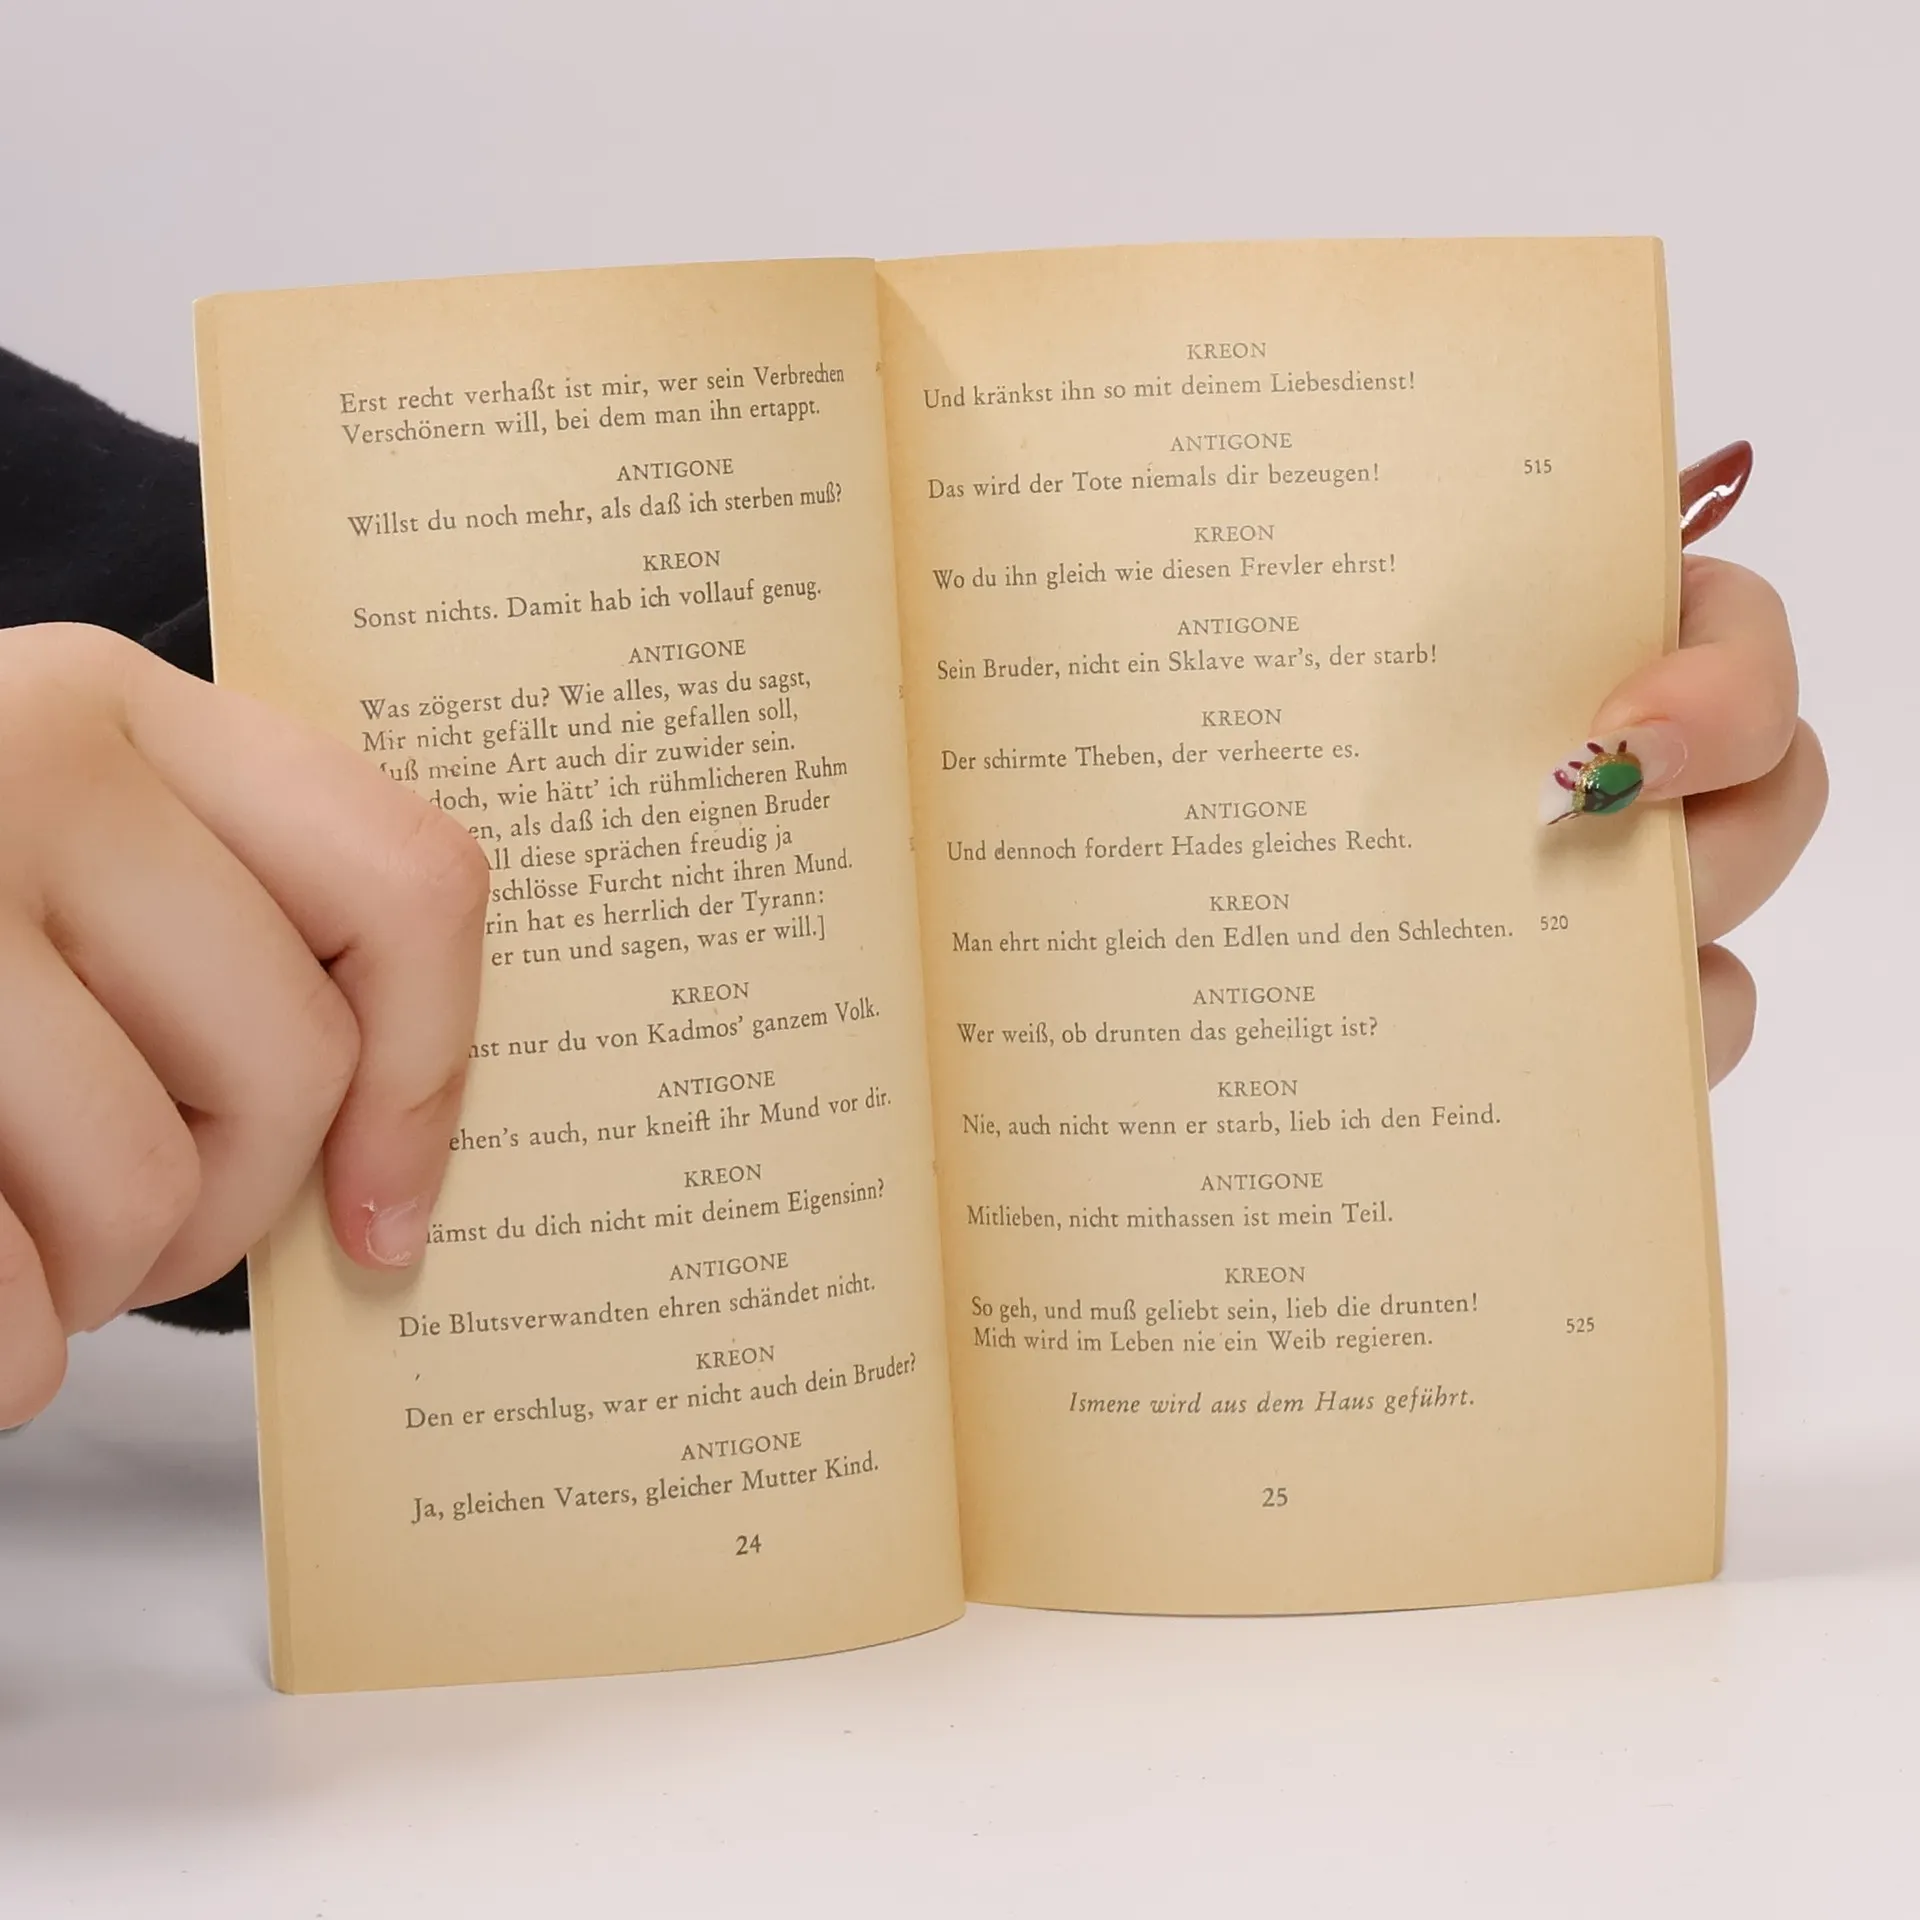 Erst recht verhaßt ist mir, wer sein Verbrechen
Verschönern will, bei dem man ihn ertappt.
ANTIGONE
Willst du noch mehr, als daß ich sterben muß?
KREON
Sonst nichts. Damit hab ich vollauf genug.
ANTIGONE
Was zögerst du? Wie alles, was du sagst,
Mir nicht gefällt und nie gefallen soll,
meine Art auch dir zuwider sein.
doch, wie hätt' ich rühmlicheren Ruhm
als daß ich den eignen Bruder
diese sprächen freudig ja
schlösse Furcht nicht ihren Mund.
hat es herrlich der Tyrann:
er tun und sagen, was er will.]
KREON
nur du von Kadmos' ganzem Volk.
ANTIGONE
auch, nur kneift ihr Mund vor dir.
KREON
du dich nicht mit deinem Eigensinn?
ANTIGONE
Die Blutsverwandten ehren schändet nicht.
KREON
Den er erschlug, war er nicht auch dein Bruder?
ANTIGONE
Ja, gleichen Vaters, gleicher Mutter Kind.
24
KREON
Und kränkst ihn so mit deinem Liebesdienst!
ANTIGONE
Das wird der Tote niemals dir bezeugen! 515
KREON
Wo du ihn gleich wie diesen Frevler ehrst!
ANTIGONE
Sein Bruder, nicht ein Sklave war's, der starb!
KREON
Der schirmte Theben, der verheerte es.
ANTIGONE
Und dennoch fordert Hades gleiches Recht.
KREON
Man ehrt nicht gleich den Edlen und den Schlechten. 520
ANTIGONE
Wer weiß, ob drunten das geheiligt ist?
KREON
Nie, auch nicht wenn er starb, lieb ich den Feind.
ANTIGONE
Mitlieben, nicht mithassen ist mein Teil.
KREON
So geh, und muß geliebt sein, lieb die drunten!
Mich wird im Leben nie ein Weib regieren. 525
Ismene wird aus dem Haus geführt.
25